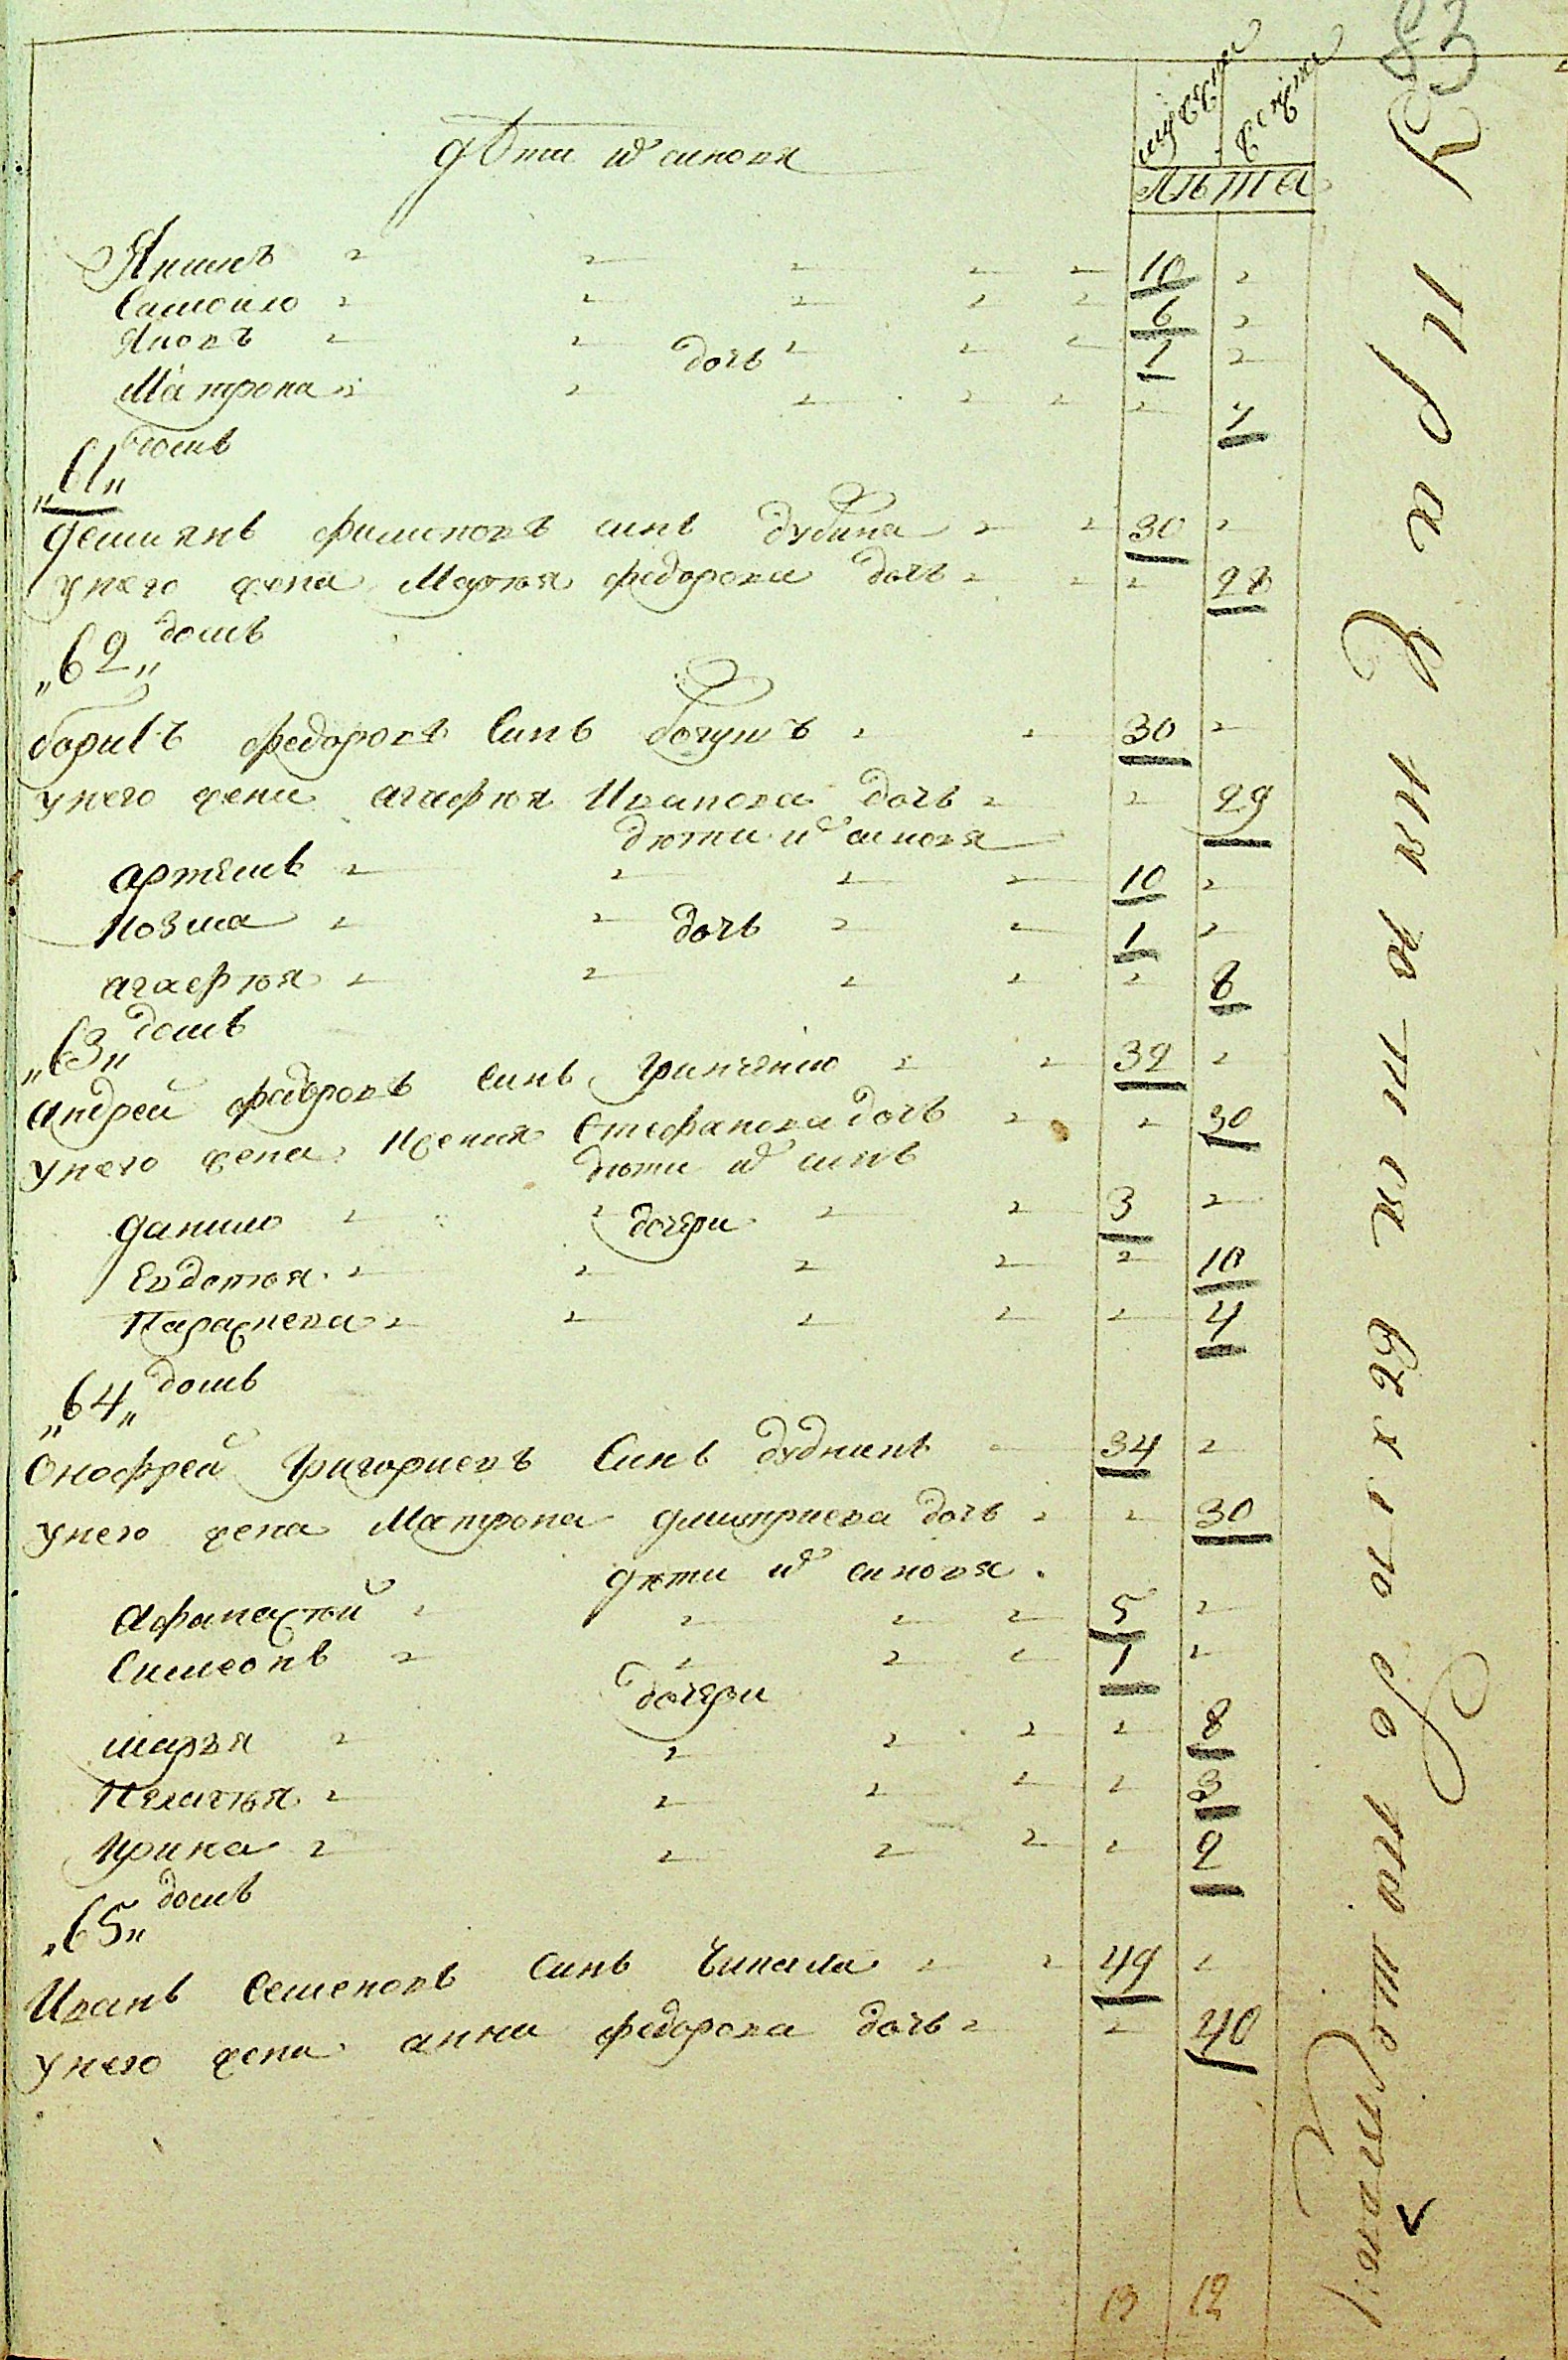 83
мужеска женска
Лѣта
Дѣти ихъ синовя
Якимъ 10
Самойло 6
Яковъ 1
дочь
Матрона 7
„61„ домъ
Демянъ Филиповъ синъ Дубина 30
у него жена Марѳія Федорова дочь 28
„62„ домъ
Борисъ Федоровъ Синъ Богушъ 30
у него жена Агафія Иванова дочь 29
дѣти ихъ синовя
Артемъ 10
Козма 1
дочь
Агафія 8
„63„ домъ
Андрей Федоровъ синъ Гринченко 32
у него жена Ксения Стефанова дочь 30
дѣти ихъ синъ
Данило 3
дочери
Евдотія 10
Параскева 4
„64„ домъ
Онофрей Григориевъ Синъ Дудникъ 34
у него жена Матрона Димитриева дочь 30
Дѣти ихъ синовя
Афанасій 5
Симеонъ 1
дочери
Маръя 8
Пелагія 3
Ирина 2
„65„ домъ
Иванъ Семеновъ Синъ Чикала 49
у него жена Анна Федорова дочь 40
13 12